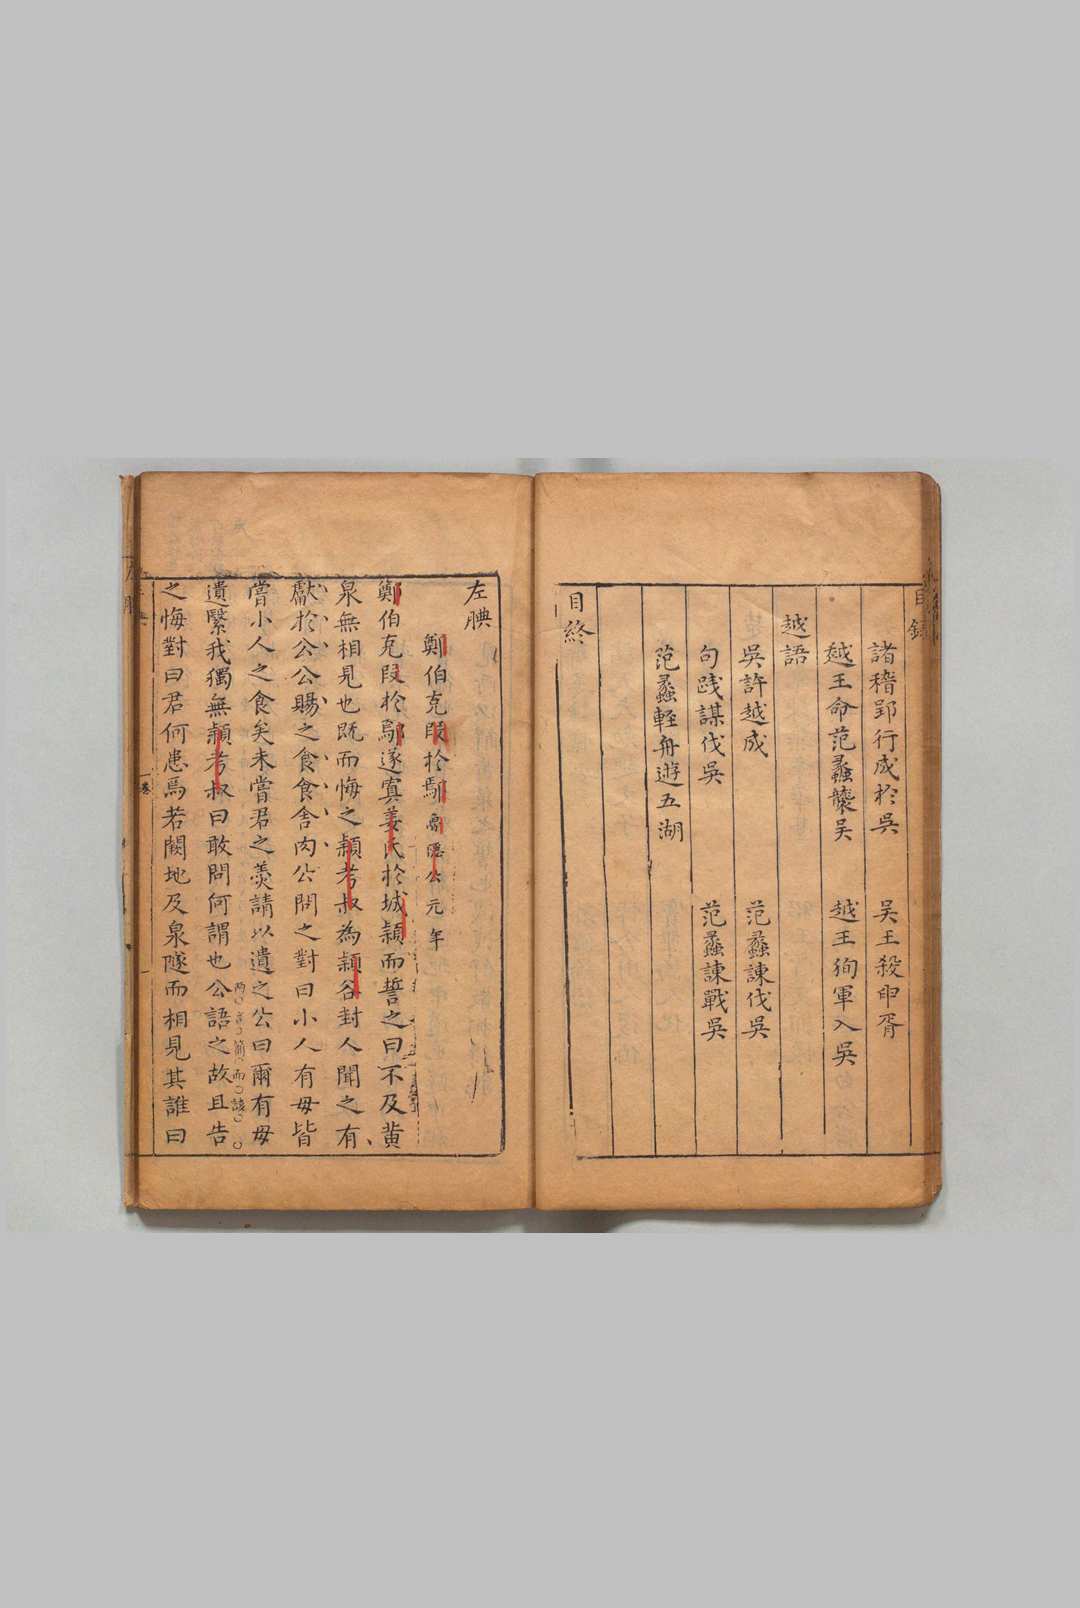 目錄
諸稽郢行成於吳 吳王殺申胥
越王命范蠡襲吳 越王徇軍入吳
越語
吳許越成 范蠡諫伐吳
句踐謀伐吳 范蠡諫戰吳
范蠡輕舟遊五湖
目終
左腴
鄭伯克段於鄢 魯隱公元年
鄭伯克段於鄢遂寘姜氏於城潁而誓之曰不及黃
泉無相見也既而悔之潁考叔為潁谷封人聞之有
獻於公公賜之食食舍肉公問之對曰小人有母皆
嘗小人之食矣未嘗君之羹請以遺之公曰爾有母
遺繄我獨無潁考叔曰敢問何謂也公語之故且告
之悔對曰君何患焉若闕地及泉隧而相見其誰曰
卷一